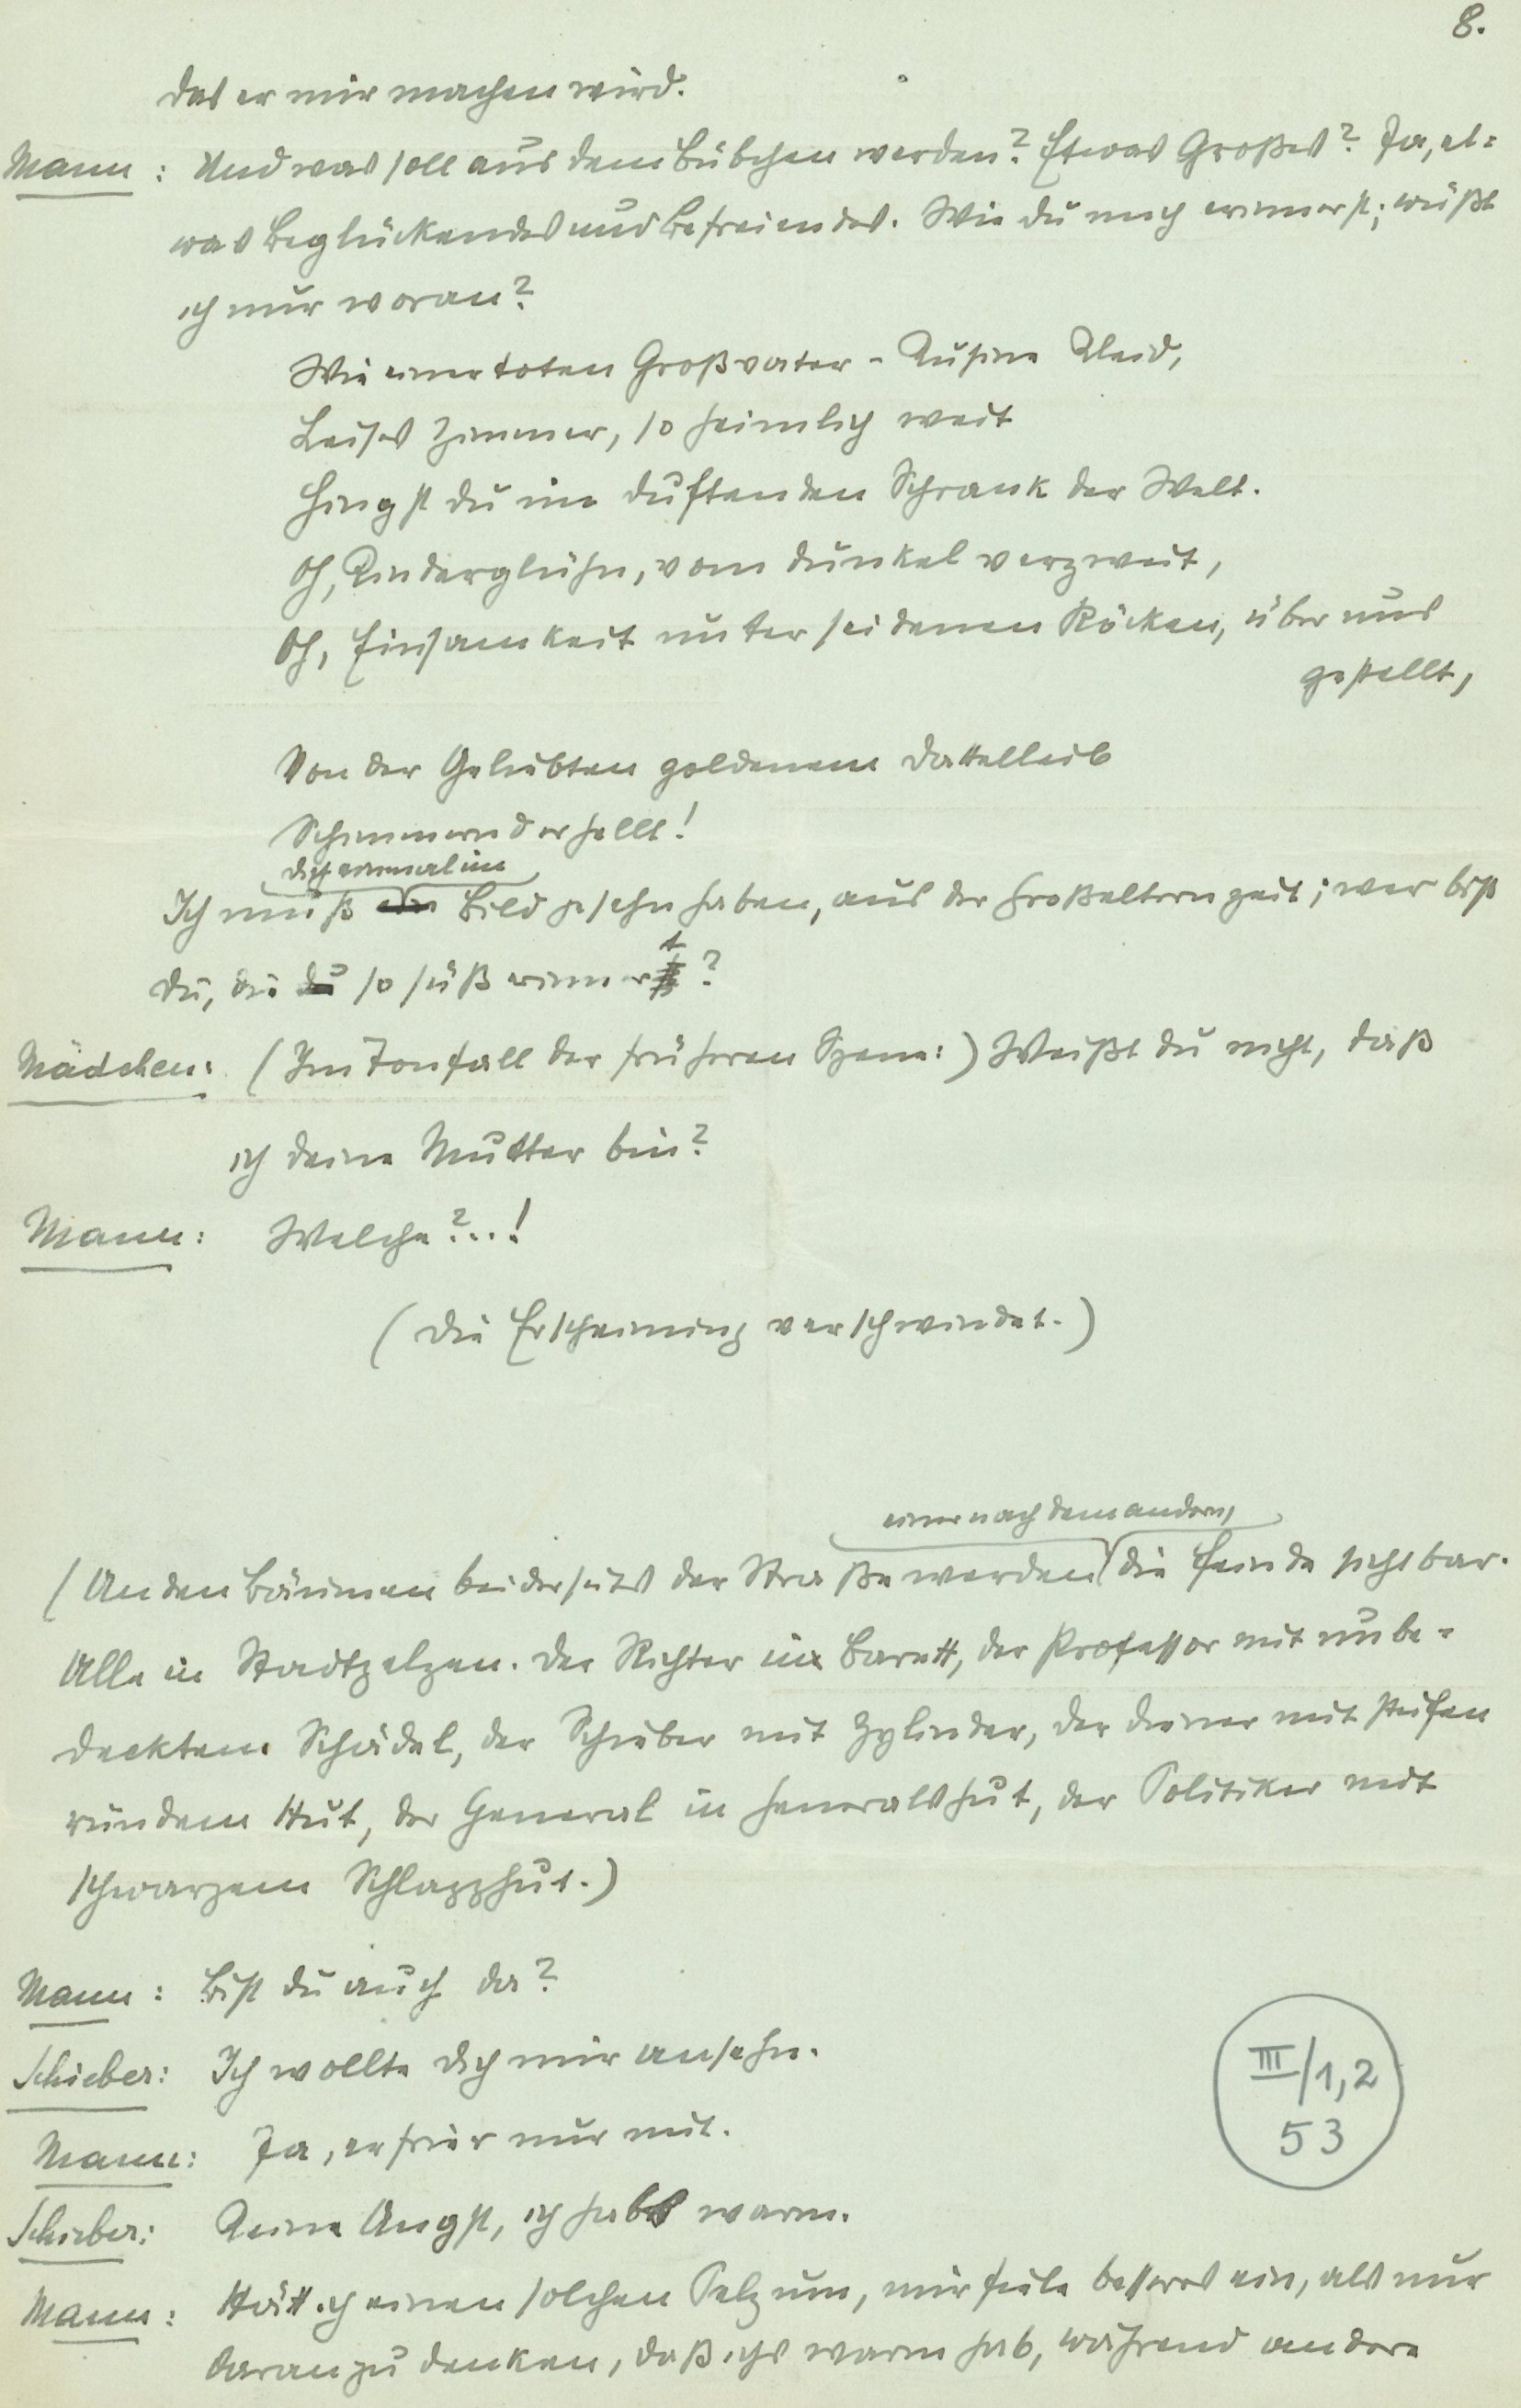 8.
das er mir machen wird.
Mann: Und was soll aus dem Bübchen werden? Etwas Großes? Ja, et=
was Beglückendes und Befreiendes. Wie du mich erinnerst; wüßt
ich nur woran?
Wie einer toten Großvater-Kusine Kleid,
Leises Zimmer, so heimlich weit
Hingst du im duftenden Schrank der Welt.
Oh, Kinderglühn, vom Dunkel verzweit,
Oh, Einsamkeit unter seidenen Röcken, über uns
gestellt,
Von der Geliebten goldenem Dattelleib
Schimmernd erhellt!
dich einmal im
Ich muß ein Bild gesehn haben, aus der Großelternzeit; wer bist
du, die du so süß erinnert?
Mädchen: (Im Tonfall der früheren Szene:) Weißt du nicht, daß
ich deine Mutter bin?
Mann: Welche?..!
(Die Erscheinung verschwindet.)
einer nach dem andern,
(An den Bäumen beiderseits der Straße werden die Feinde sichtbar.
Alle in Stadtpelzen. Der Richter im Barett, der Professor mit unbe-
decktem Schädel, der Schieber mit Zylinder, der Diener mit steifem
rundem Hut, der General in Generalshut, der Politiker mit
schwarzem Schlapphut.)
Mann: Bist du auch da?
Schieber: Ich wollte dich mir ansehn.
Mann: Ja, erfrier nur mit.
Schieber: Keine Angst, ich habs warm.
Mann: Hätt ich einen solchen Pelz um, mir fiele besseres ein, als nur
daran zu denken, daß ichs warm hab, während andere
III/1,2
53